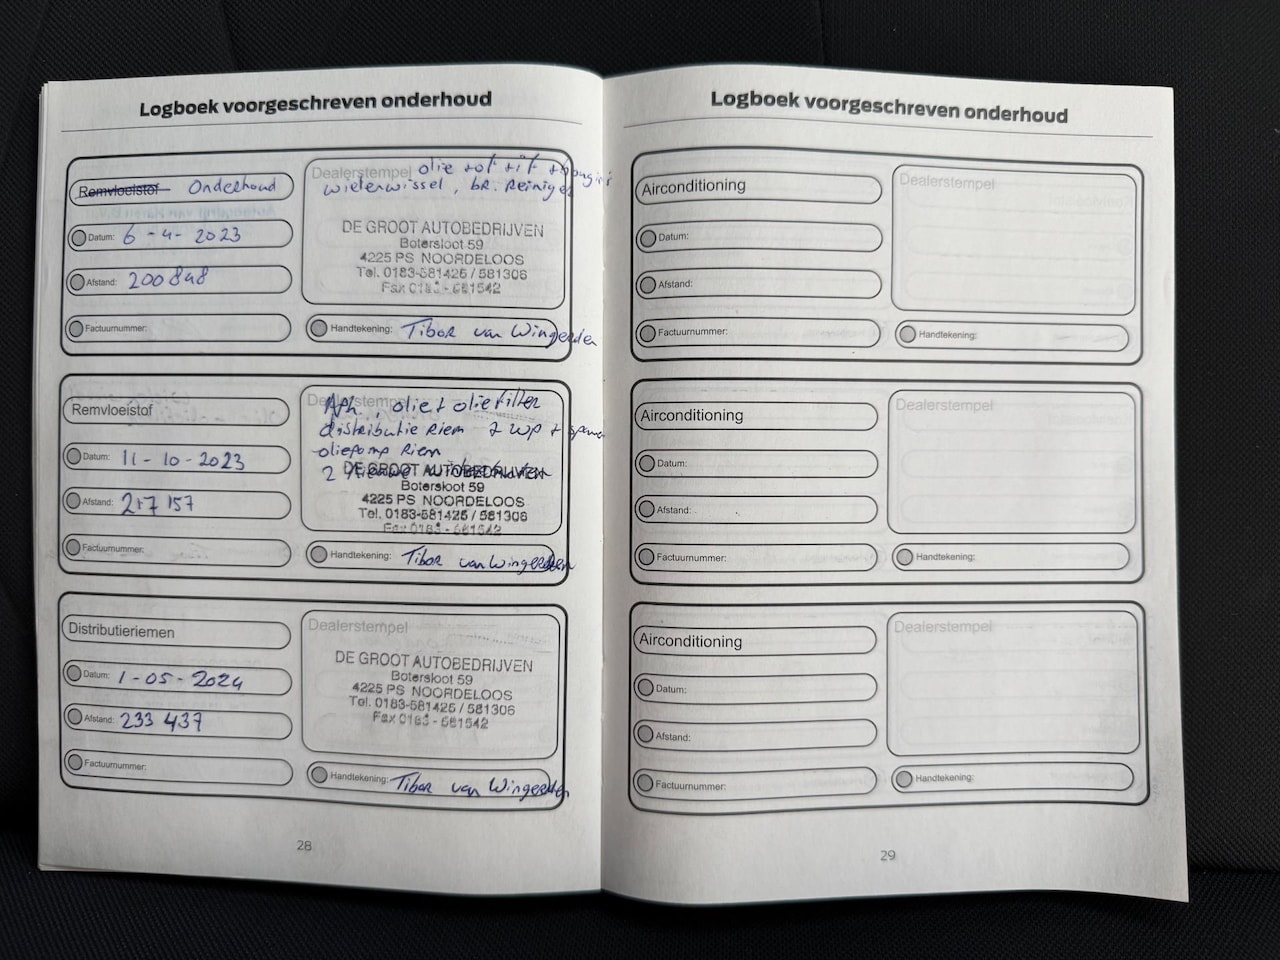 Logboek voorgeschreven onderhoud
Remvloeistof Onderhoud
Datum: 6-4-2023
Afstand: 200848
Factuurnummer:
Dealerstempel olie +of +if
wielerwissel, br. Reiniger
DE GROOT AUTOBEDRIJVEN
Botersloot 59
4225 PS NOORDELOOS
Tel. 0183-581425 / 581306
Fax 0183 - 581542
Handtekening: Tibor van Wingerden
Remvloeistof
Datum: 11-10-2023
Afstand: 217 157
Factuurnummer:
Dealerstempel Apk., olie + olie filter
distributie Riem + wp +
oliepomp Riem
2 nieuwe
DE GROOT AUTOBEDRIJVEN
Botersloot 59
4225 PS NOORDELOOS
Tel. 0183-581425 / 581306
Fax 0183 - 581542
Handtekening: Tibor van Wingerden
Distributieriemen
Datum: 1-05-2024
Afstand: 233 437
Factuurnummer:
Dealerstempel
DE GROOT AUTOBEDRIJVEN
Botersloot 59
4225 PS NOORDELOOS
Tel. 0183-581425 / 581306
Fax 0183 - 581542
Handtekening: Tibor van Wingerden
28
Logboek voorgeschreven onderhoud
Airconditioning
Datum:
Afstand:
Factuurnummer:
Dealerstempel
Handtekening:
Airconditioning
Datum:
Afstand:
Factuurnummer:
Dealerstempel
Handtekening:
Airconditioning
Datum:
Afstand:
Factuurnummer:
Dealerstempel
Handtekening:
29